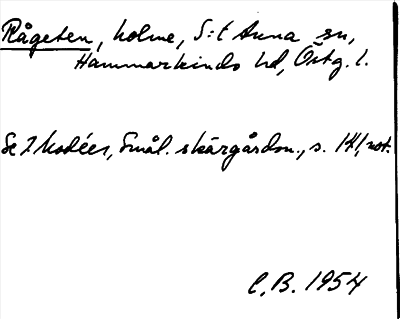 Rågeten, holme, S:t Anna sn,
Hammarkinds hd, Östg. l.
Se I. Modéer, Smål. skärgårdsn., s. 141, not.
C.B. 1954